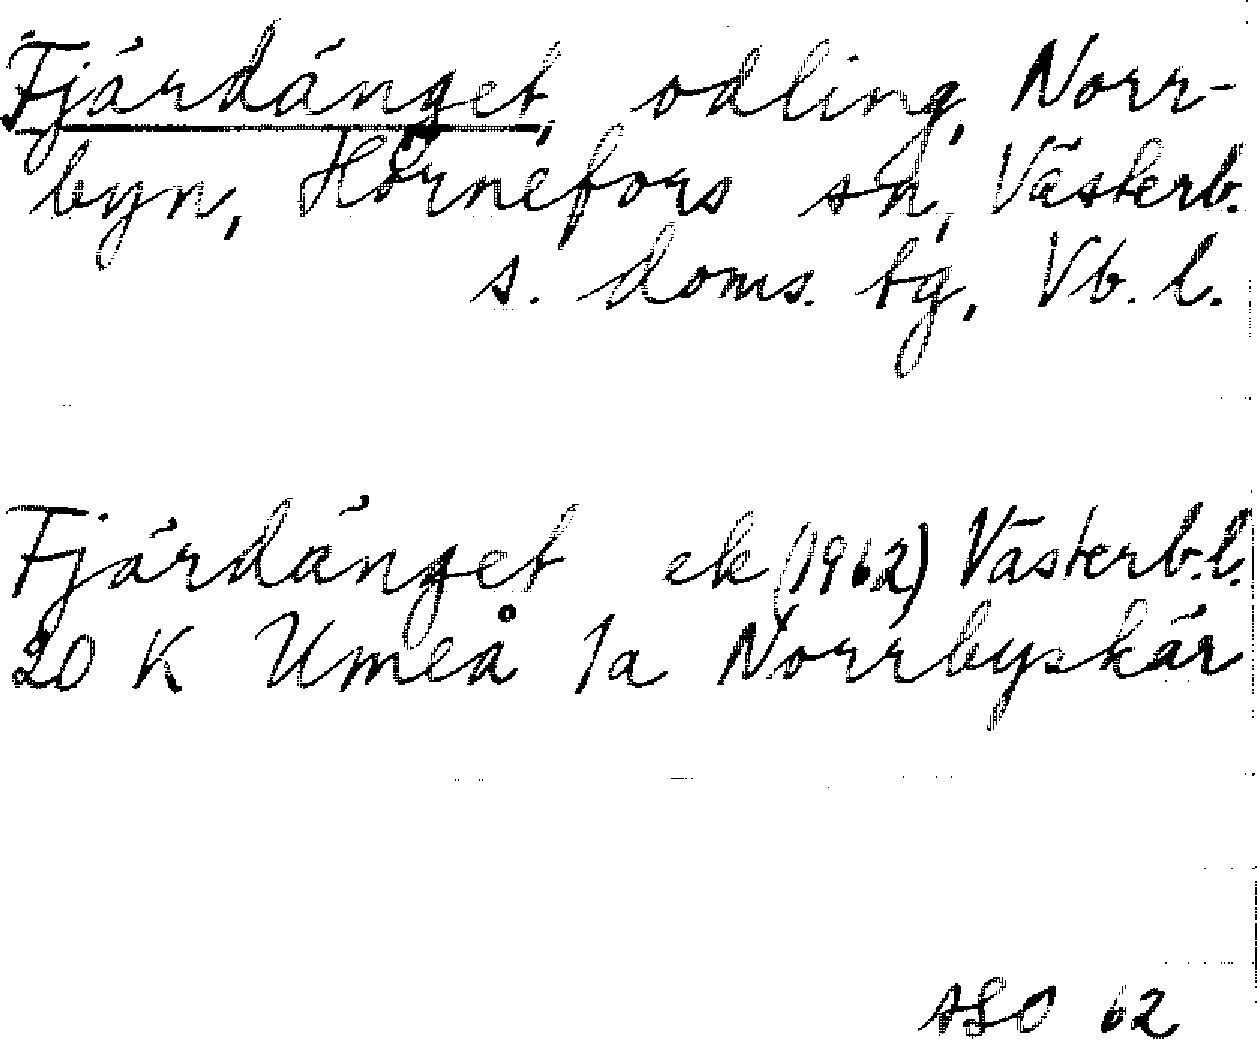 Fjärdänget, odling, Norr-
byn, Hörnefors sn, Västerb.
s. doms. tg, Vb. l.
Fjärdänget ek (1962) Västerb. l.
20 K Umeå 1a Norrbyskär
ASO 62